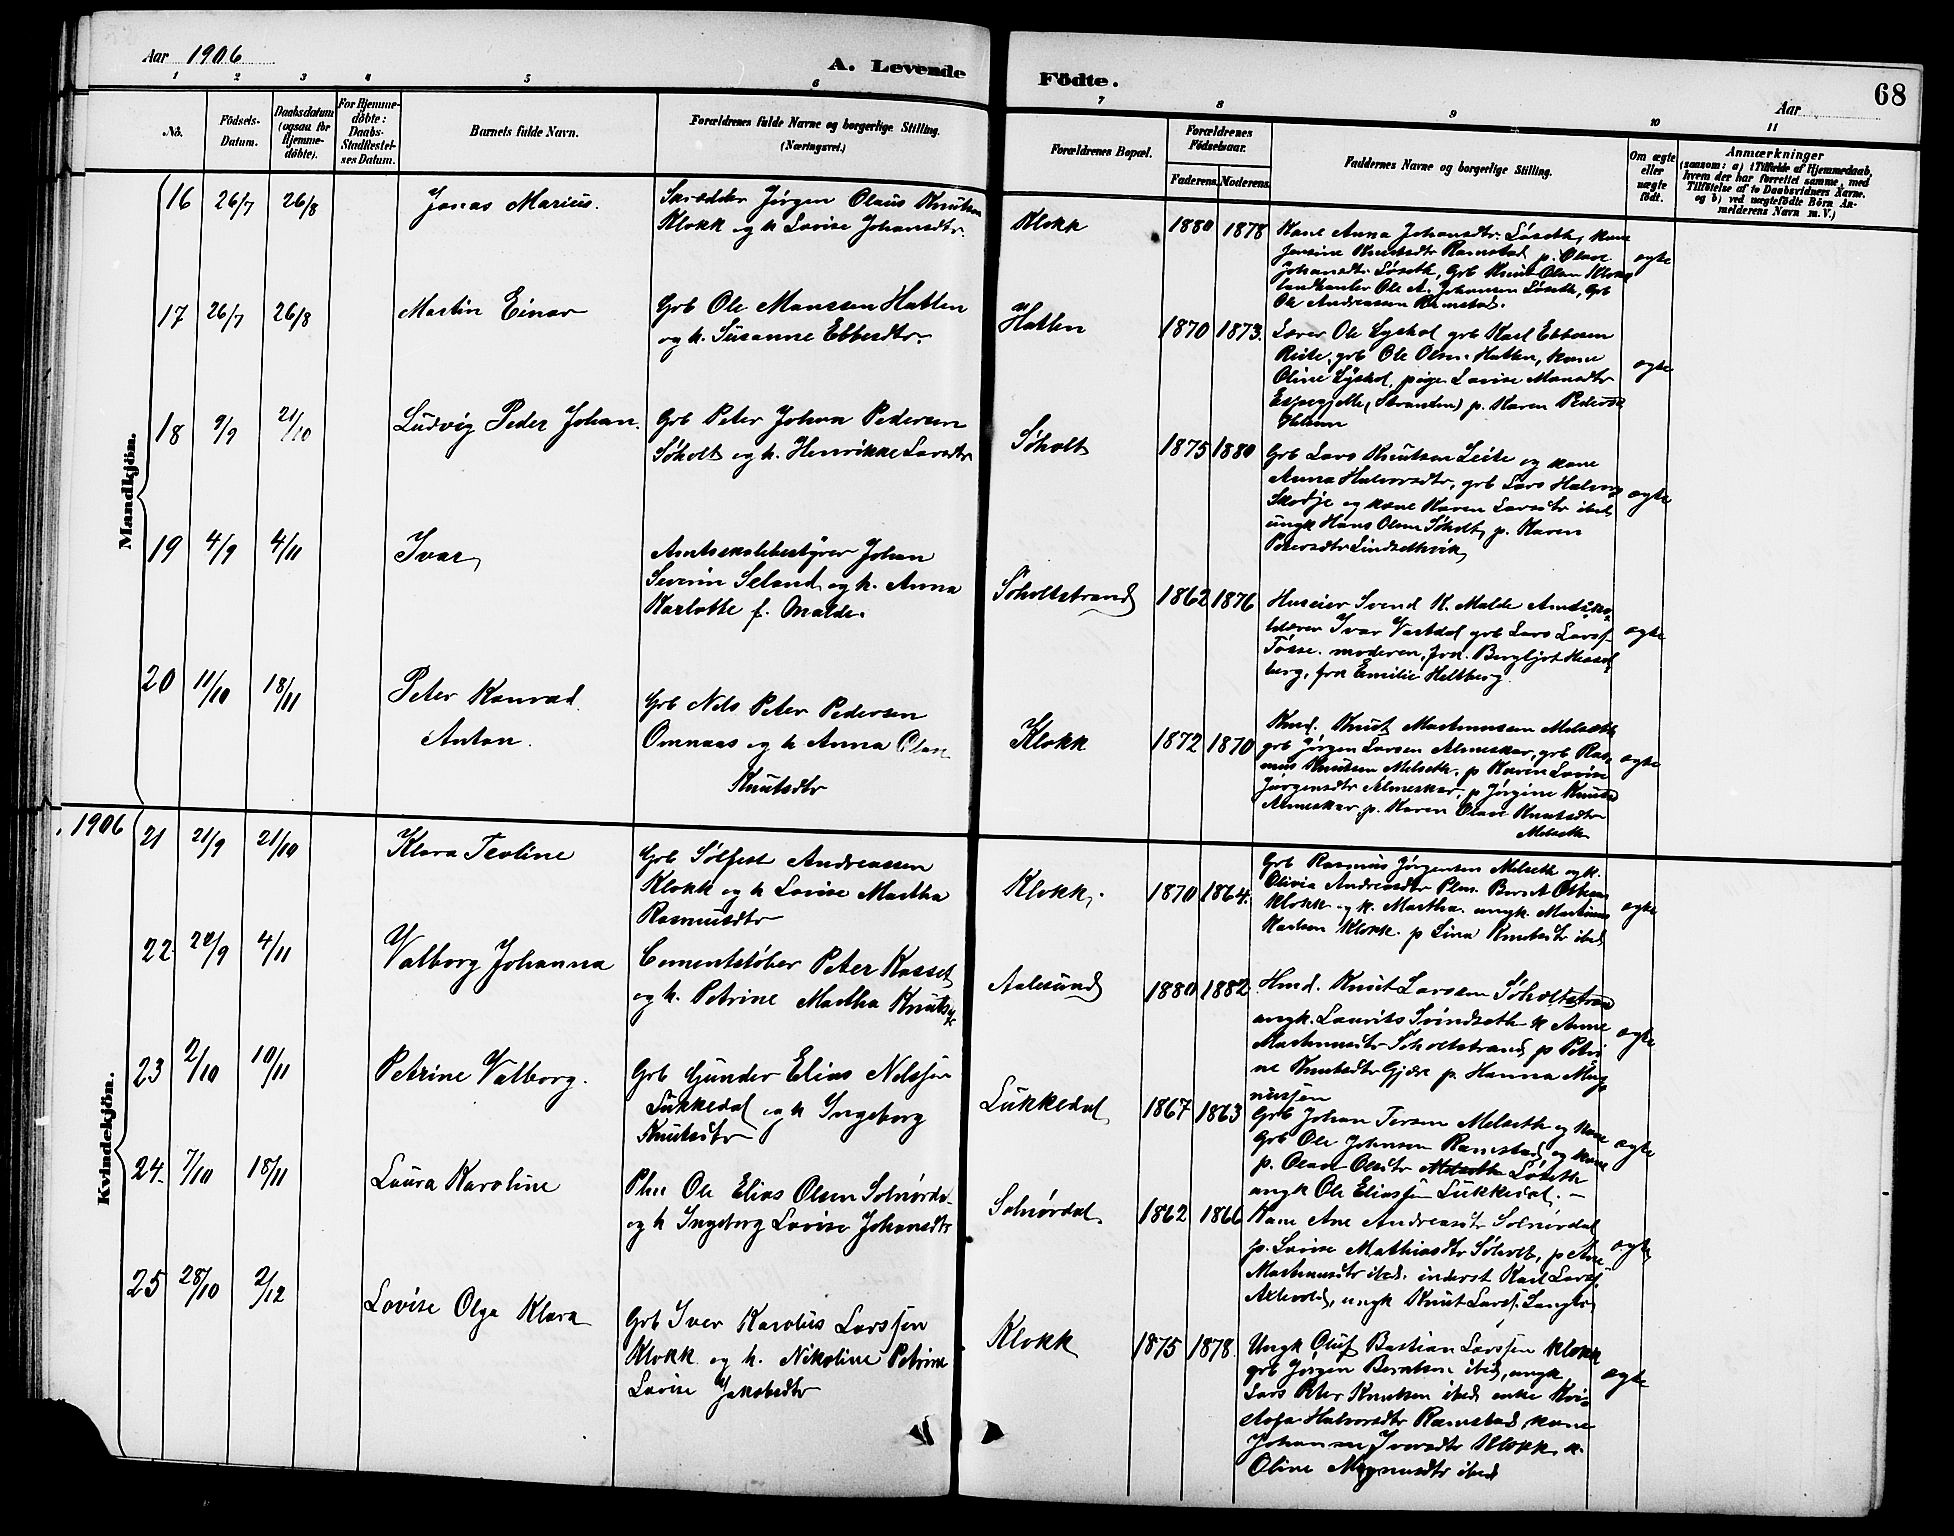 Aar 1906
A. Levende Födte.
Aar
68
1 2 3 4 5 6 7 8 9 10 11
No.
Födsels-
Datum.
Daabsdatum
(ogsaa for
Hjemme-
döbte).
For Hjemme-
döbte:
Daabs-
Stadfæstel-
ses Datum.
Barnets fulde Navn.
Forældrenes fulde Navne og borgerlige Stilling.
(Næringsvei.)
Forældrenes Bopæl.
Forældrenes
Födselsaar.
Faderens. Moderens.
Faddernes Navne og borgerlige Stilling.
Om ægte
eller
uægte
födt.
Anmærkninger
(saasom: a) i Tilfælde af Hjemmedaab,
hvem der har forrettet samme, med
Tilföielse af to Daabsvidners Navne,
og b) ved uægtefödte Börn An-
melderens Navn m. V.)
Mandkjön.
16 26/7 26/8 Jonas Marius.
Skrædder Jørgen Olaus Knutsen
Klokk og h Lovise Johansdtr.
Klokk 1880 1878
Kone Anna Johansdtr. Løseth, kone
Jensine Knutsdtr Ramstad p. Olave
Johansdtr Løseth, Grb Knut Olsen Klokk
landhandler Ole A. Johansen Løseth, Grb
Ole Andreassen Ramstad.
ægte
17 26/7 26/8 Martin Einar
Grb Ole Monssen Hatlen
og h. Susanne Ebbesdtr.
Hatlen 1870 1873.
Lærer Ole Lyshol grb Karl Ebbesen
Reite, grb Ole Olsen Hatlen, kone
Oline Lyshol, pige Lovise Monsdtr
Espegjelle, (Stranden) p. Karen Pedersd
ægte
18 9/9 21/10 Ludvig Peder Johan.
Grb Peter Johan Pedersen
Søholt og h. Henrikke Larsdtr
Søholt 1875 1880
Grb Lars Knutsen Leite og kone
Anna Halvorsdtr, grb Lars Halvors
Skodje og kone Karen Larsdtr ibd,
ungk Hans Olsen Søholt, p. Karen
Petersdtr Lindsethvik,
ægte
19 4/9 4/11 Ivar
Amtsskolebestyrer Johan
Severin Seland og h. Anna
Karlotte f. Malde.
Søholtstrand 1862 1876
Huseier Svend K. Malde Amtssko-
lelærer Ivar Vartdal grb Lars Larss.
Tøsse. moderen, frk. Bergljot Hessel
berg, frk Emilie Heltberg.
ægte
20 11/10 18/11 Peter Konrad
Anton.
Grb Nils Peter Pedersen
Omnaas og h Anna Olave
Knutsdtr
Klokk 1872 1870
Kmd. Knut Martinussen Melseth
grb Jørgen Larsen Almeskar, grb Ras-
mus Knutsen Melseth, p Karen Lovise
Jørgensdtr Almeskar, p Jørgine Knutsd
Almeskar, p. Karen Olave Knutsdtr
Melseth
ægte
1906
Kvindekjön.
21 21/9 21/10 Klara Teoline
Grb Sølfest Andreassen
Klokk og h Lovise Martha
Rasmusdtr
Klokk. 1870 1864.
Grb Rasmus Jørgensen Melseth og k.
Olivia Andreasdtr Plm. Bernt Ottesen
Klokk og k. Martha. ungk. Martinus
Karlsen Klokk. p Lina Knutsdtr ibd.
ægte
22 22/9 4/11 Valborg Johanna
Cementstøber Peter Kasset
og h. Petrine Martha Knutsd
Aalesund 1880 1882
Hmd. Knut Larssen Søholtstrand
ungk. Laurits Svindseth k Anne
Martinusdtr Søholtstrand, p Petri
ne Knutsdtr Gjære p. Hanna Mag
nussen
ægte
23 2/10 10/11 Petrine Valborg.
Grb Gunder Elias Nilssen
Lükkedal og h Ingeborg
Knutsdtr
Lükkedal 1867 1863
Grb Johan Tersen Melseth og kone
Grb Ole Johnsen Ramstad, og kone
p. Olave Olsdtr Løseth
ungk Ole Eliassen Lükkedal. –
ægte
24. 7/10 18/11 Laura Karoline
Plm Ole Elias Olsen Solnørdal
og h Ingeborg Lovise Johansdtr
Solnørdal. 1862 1866
Kone Ane Andreasdtr Solnørdal
p. Lovise Mathiasdtr Søholt, p Ane
Martinusdtr ibd. inderst Karl Larss.
ungk Knut Larss.
ægte
25 28/10 2/12 Lovise Olga Klara
Grb Iver Karolus Larssen
Klokk og h. Nikoline Petrine
Lovise Jakobsdtr
Klokk 1875 1878.
Ungk Oluf Bastian Larssen Klokk
grb Jørgen Berntsen ibd, ungk
Lars Peter Knutsen ibd enke Kri-
stofa Halvorsdtr Ramstad, kone
Johanne Iversdtr Klokk, k.
Oline Magnusdtr ibd
ægte